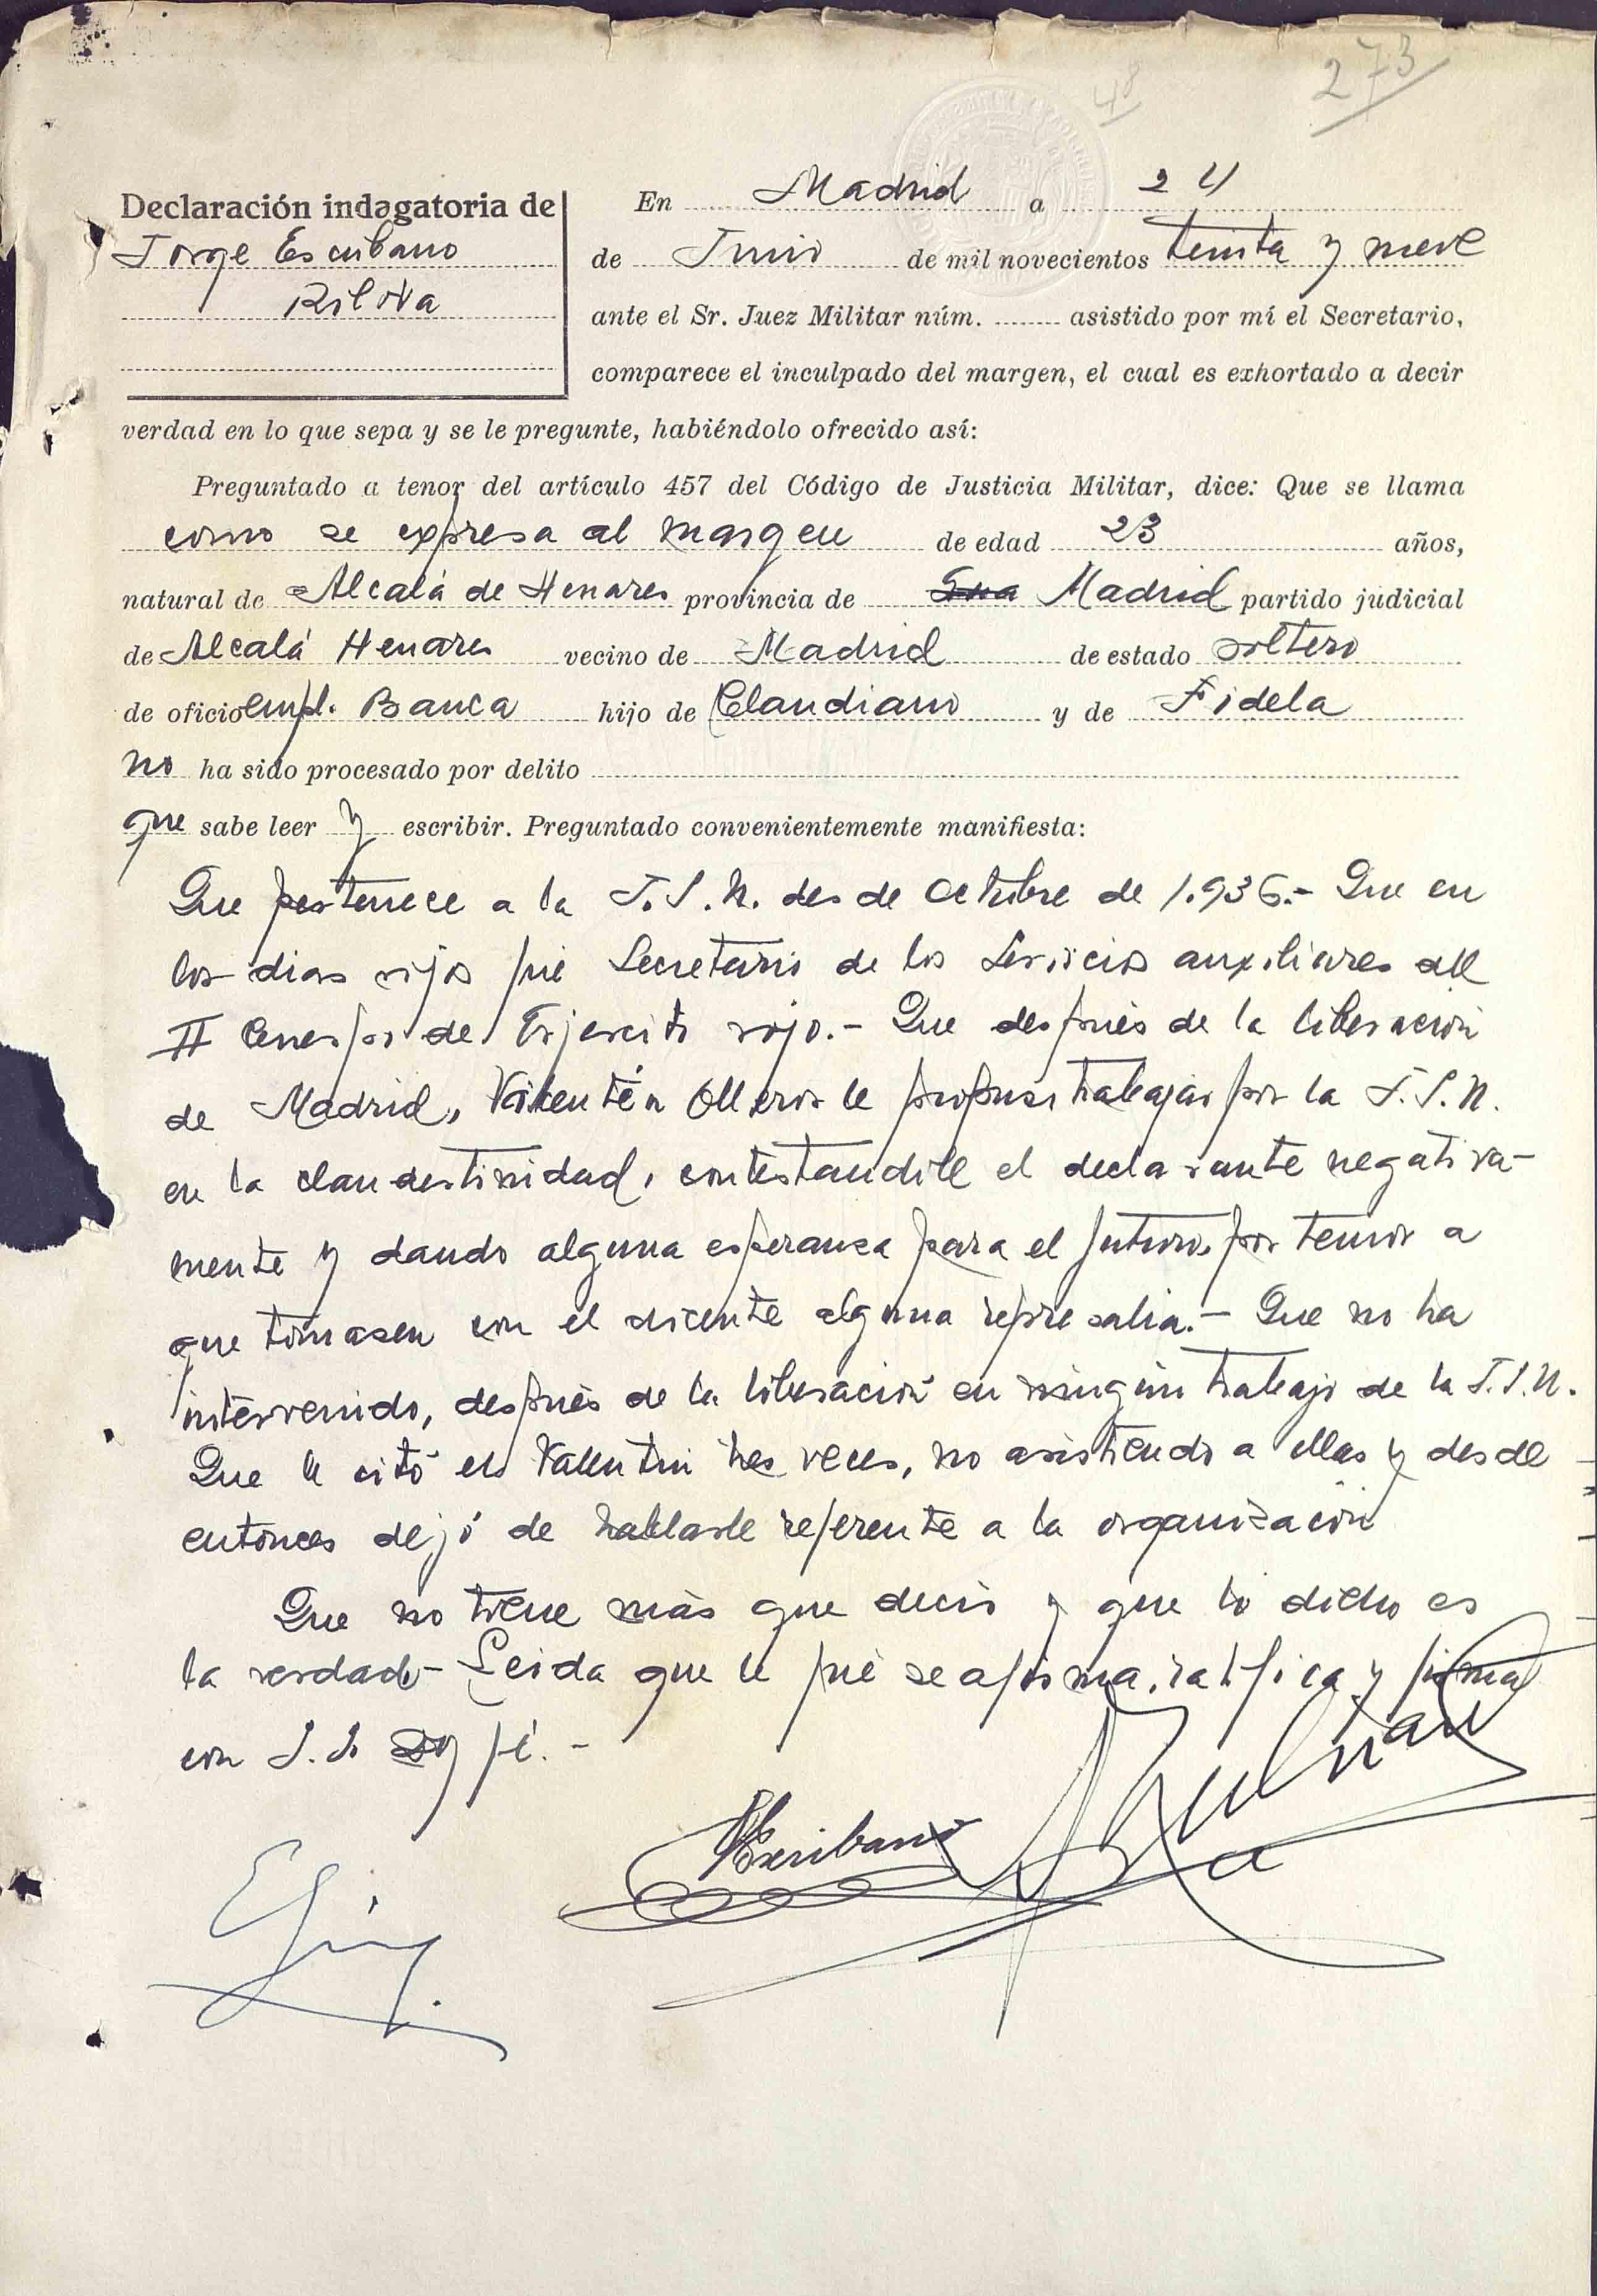 273
48
Declaración indagatoria de
Jorge Escribano
Rilova
En Madrid a 24
de Junio de mil novecientos treinta y nueve
ante el Sr. Juez Militar núm. asistido por mí el Secretario,
comparece el inculpado del margen, el cual es exhortado a decir
verdad en lo que sepa y se le pregunte, habiéndolo ofrecido así:
Preguntado a tenor del artículo 457 del Código de Justicia Militar, dice: Que se llama
como se expresa al margen de edad 23 años,
natural de Alcalá de Henares provincia de Madrid partido judicial
de Alcalá Henares vecino de Madrid de estado soltero
de oficio empl. Banca hijo de Claudiano y de Fidela
no ha sido procesado por delito
que sabe leer y escribir. Preguntado convenientemente manifiesta:
Que pertenece a la J.S.U. desde Octubre de 1.936.- Que en
los dias rojos fué Secretario de los Servicios auxiliares del
II Cuerpo de Ejercito rojo.- Que después de la liberación
de Madrid, Valentín Olleros le propuso trabajar por la J.S.U.
en la clandestinidad, contestandole el declarante negativa-
mente y dando alguna esperanza para el futuro, por temor a
que tomasen con el dicente alguna represalia.- Que no ha
intervenido, después de la liberación en ningún trabajo de la J.S.U.
Que le citó el Valentin tres veces, no asistiendo a ellas y desde
entonces dejó de hablarle referente a la organización
Que no tiene más que decir y que lo dicho es
la verdad- Leida que le fué se afirma, ratifica y firma
con S.S. doy fé.-
Escribano